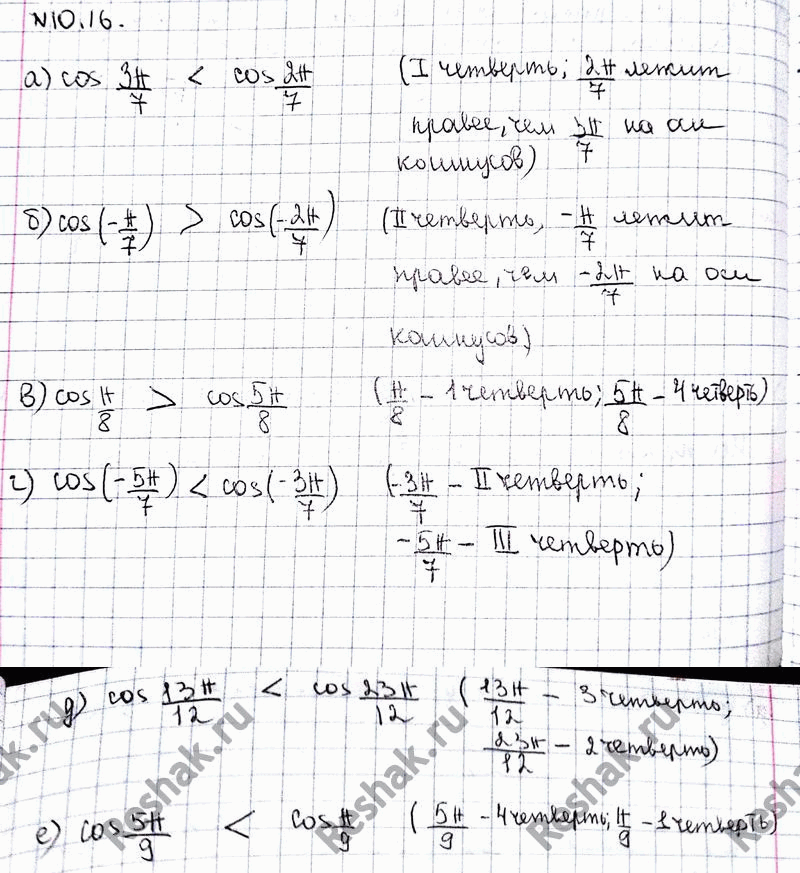 N10.16.
а) cos 3π/7 < cos 2π/7 (I четверть; 2π/7 лежит
правее, чем 3π/7 на оси
косинусов)
б) cos(-π/7) > cos(-2π/7) (II четверть, -π/7 лежит
правее, чем -2π/7 на оси
косинусов)
в) cos π/8 > cos 5π/8 (π/8 - 1 четверть; 5π/8 - 4 четверть)
г) cos(-5π/7) < cos(-3π/7) (-3π/7 - II четверть;
-5π/7 - III четверть)
д) cos 13π/12 < cos 23π/12 (13π/12 - 3 четверть;
23π/12 - 2 четверть)
е) cos 5π/9 < cos π/9 (5π/9 - 4 четверть; π/9 - 1 четверть)
Reshak.ru
Reshak.ru
Reshak.ru
Reshak.ru